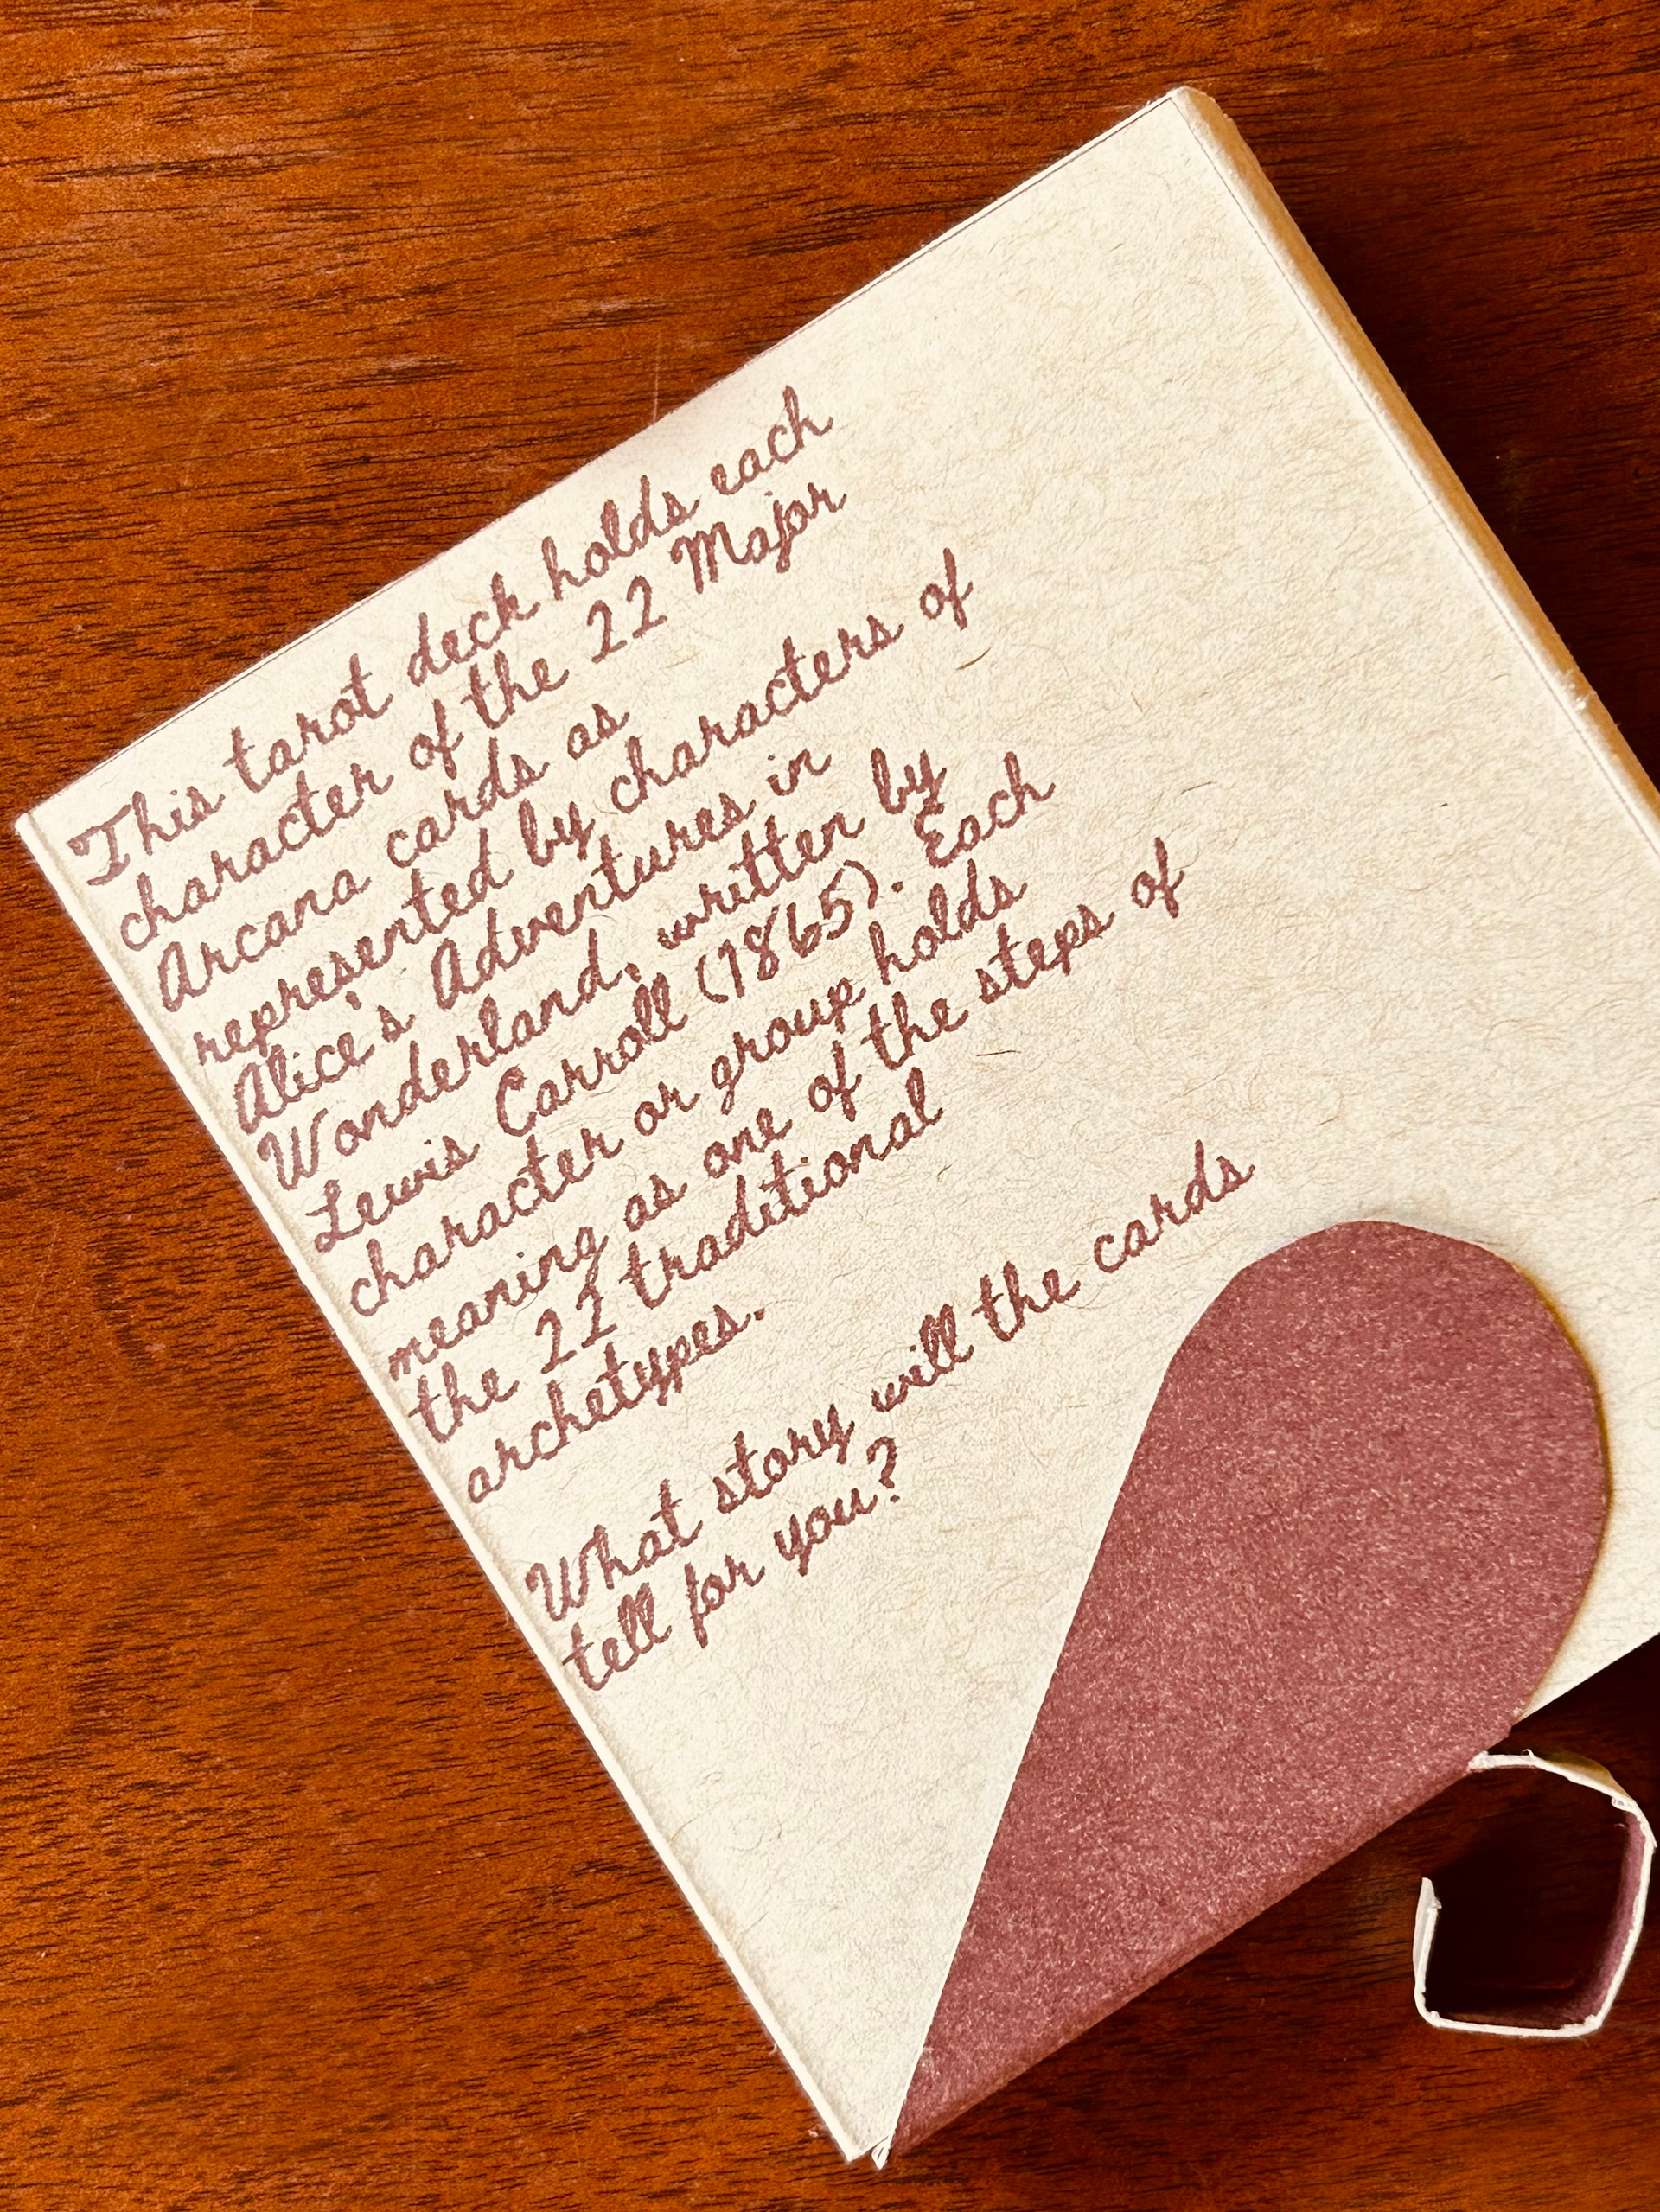 This tarot deck holds each
character of the 22 Major
Arcana cards as
represented by characters of
Alice's Adventures in
Wonderland, written by
Lewis Carroll (1865). Each
character or group holds
meaning as one of the steps of
the 22 traditional
archetypes.
What story will the cards
tell for you?